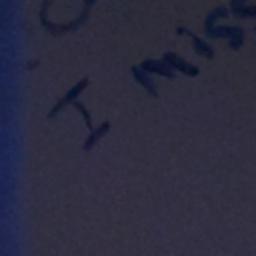 I miss